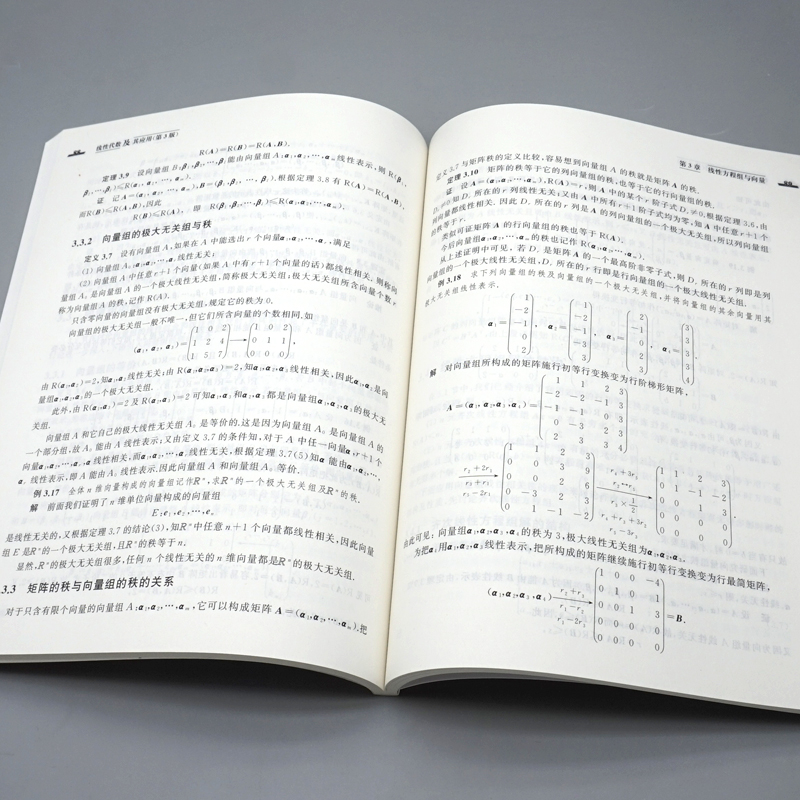 线性代数及其应用(第3版)
R(A)=R(B)=R(A,B).
定理3.9 设向量组B:β₁,β₂,…,βₗ能由向量组A:α₁,α₂,…,αₘ线性表示,则R(β₁,
β₂,…,βₗ)≤R(α₁,α₂,…,αₘ).
证 记A=(α₁,α₂,…,αₘ),B=(β₁,β₂,…,βₗ),根据定理3.8有R(A)=R(A,B),
而R(B)≤R(A,B),因此
R(B)≤R(A), 即 R(β₁,β₂,…,βₗ)≤R(α₁,α₂,…,αₘ).
3.3.2 向量组的极大无关组与秩
定义3.7 设有向量组A,如果在A中能选出r个向量α₁,α₂,…,αᵣ,满足
(1) 向量组A₀:α₁,α₂,…,αᵣ线性无关;
(2) 向量组A中任意r+1个向量(如果A中有r+1个向量的话)都线性相关,则称向
量组A₀是向量组A的一个极大线性无关组,简称极大无关组;极大无关组所含向量个数r
称为向量组A的秩,记作R(A).
只含零向量的向量组没有极大无关组,规定它的秩为0.
向量组的极大无关组一般不唯一,但它们所含向量的个数相同,如
(α₁,α₂,α₃)=(1 0 2; 1 2 4; 1 5 7)→(1 0 2; 0 1 1; 0 0 0),
由R(α₁,α₂)=2,知α₁,α₂线性无关;由R(α₁,α₂,α₃)=2,知α₁,α₂,α₃线性相关,因此α₁,α₂是向
量组α₁,α₂,α₃的一个极大无关组.
此外,由R(α₁,α₃)=2及R(α₂,α₃)=2可知α₁,α₃和α₂,α₃都是向量组α₁,α₂,α₃的极大无
关组.
向量组A和它自己的极大线性无关组A₀是等价的.这是因为向量组A₀是向量组A的
一个部分组,故A₀能由A线性表示;又由定义3.7的条件知,对于A中任一向量α,r+1个
向量α₁,α₂,…,αᵣ,α线性相关,而α₁,α₂,…,αᵣ线性无关,根据定理3.7(5)知α能由α₁,α₂,…,
αᵣ线性表示,即A能由A₀线性表示.因此向量组A和向量组A₀等价.
例3.17 全体n维向量构成的向量组记作ℝⁿ,求ℝⁿ的一个极大无关组及ℝⁿ的秩.
解 前面我们证明了n维单位向量构成的向量组
E:e₁,e₂,…,eₙ
是线性无关的,又根据定理3.7的结论(3),知ℝⁿ中任意n+1个向量都线性相关,因此向量
组E是ℝⁿ的一个极大无关组,且ℝⁿ的秩等于n.
显然,ℝⁿ的极大无关组很多,任何n个线性无关的n维向量都是ℝⁿ的极大无关组.
3.3 矩阵的秩与向量组的秩的关系
对于只含有限个向量的向量组A:α₁,α₂,…,αₘ,它可以构成矩阵A=(α₁,α₂,…,αₘ),把
第3章 线性方程组与向量
定义3.7与矩阵秩的定义比较,容易想到向量组A的秩就是矩阵A的秩.
定理3.10 矩阵的秩等于它的列向量组的秩,也等于它的行向量组的秩.
证 设A=(α₁,α₂,…,αₘ),R(A)=r,则A中的某个r阶子式Dᵣ≠0.根据定理3.6,由
Dᵣ≠0知Dᵣ所在的r列线性无关;又由A中所有r+1阶子式均为零,知A中任意r+1个
列向量都线性相关.因此Dᵣ所在的r列是A的列向量组的一个极大无关组,所以列向量组
的秩等于r.
类似可证矩阵A的行向量组的秩也等于R(A).
今后向量组α₁,α₂,…,αₘ的秩也记作R(α₁,α₂,…,αₘ).
从上述证明中可见,若Dᵣ是矩阵A的一个最高阶非零子式,则Dᵣ所在的r列即是列
向量组的一个极大线性无关组,Dᵣ所在的r行即是行向量组的一个极大线性无关组.
例3.18 求下列向量组的秩及向量组的一个极大无关组,并将向量组的其余向量用其
极大无关组线性表示.
α₁=(1; -2; -1; 0; 2), α₂=(1; -2; -1; -3; 3), α₃=(2; -1; 0; 2; 3), α₄=(3; 3; 3; 3; 4).
解 对向量组所构成的矩阵施行初等行变换变为行阶梯形矩阵,
A=(α₁,α₂,α₃,α₄)=
由此可见:向量组α₁,α₂,α₃,α₄的秩为3,极大线性无关组为α₁,α₂,α₃.
为把α₄用α₁,α₂,α₃线性表示,把所构成的矩阵继续施行初等行变换变为行最简矩阵,
(α₁,α₂,α₃,α₄) (1 0 0 -4; 0 1 0 1; 0 0 1 3; 0 0 0 0; 0 0 0 0)=B.